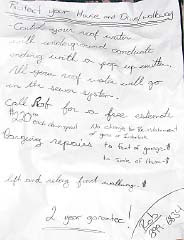 Protect your House and Driveway
Control your roof water
with underground conduite
ending with a pop up emitter.
All your roof water will go
in the sewer system.
Call Rob for a free estimate
$220.00 each downspout No charge for the reinstatement
of grass or Interlock
repairs to foot of garage: $
to side of them: $
lift and relay front walkway: $
2 year garantee!
Rob